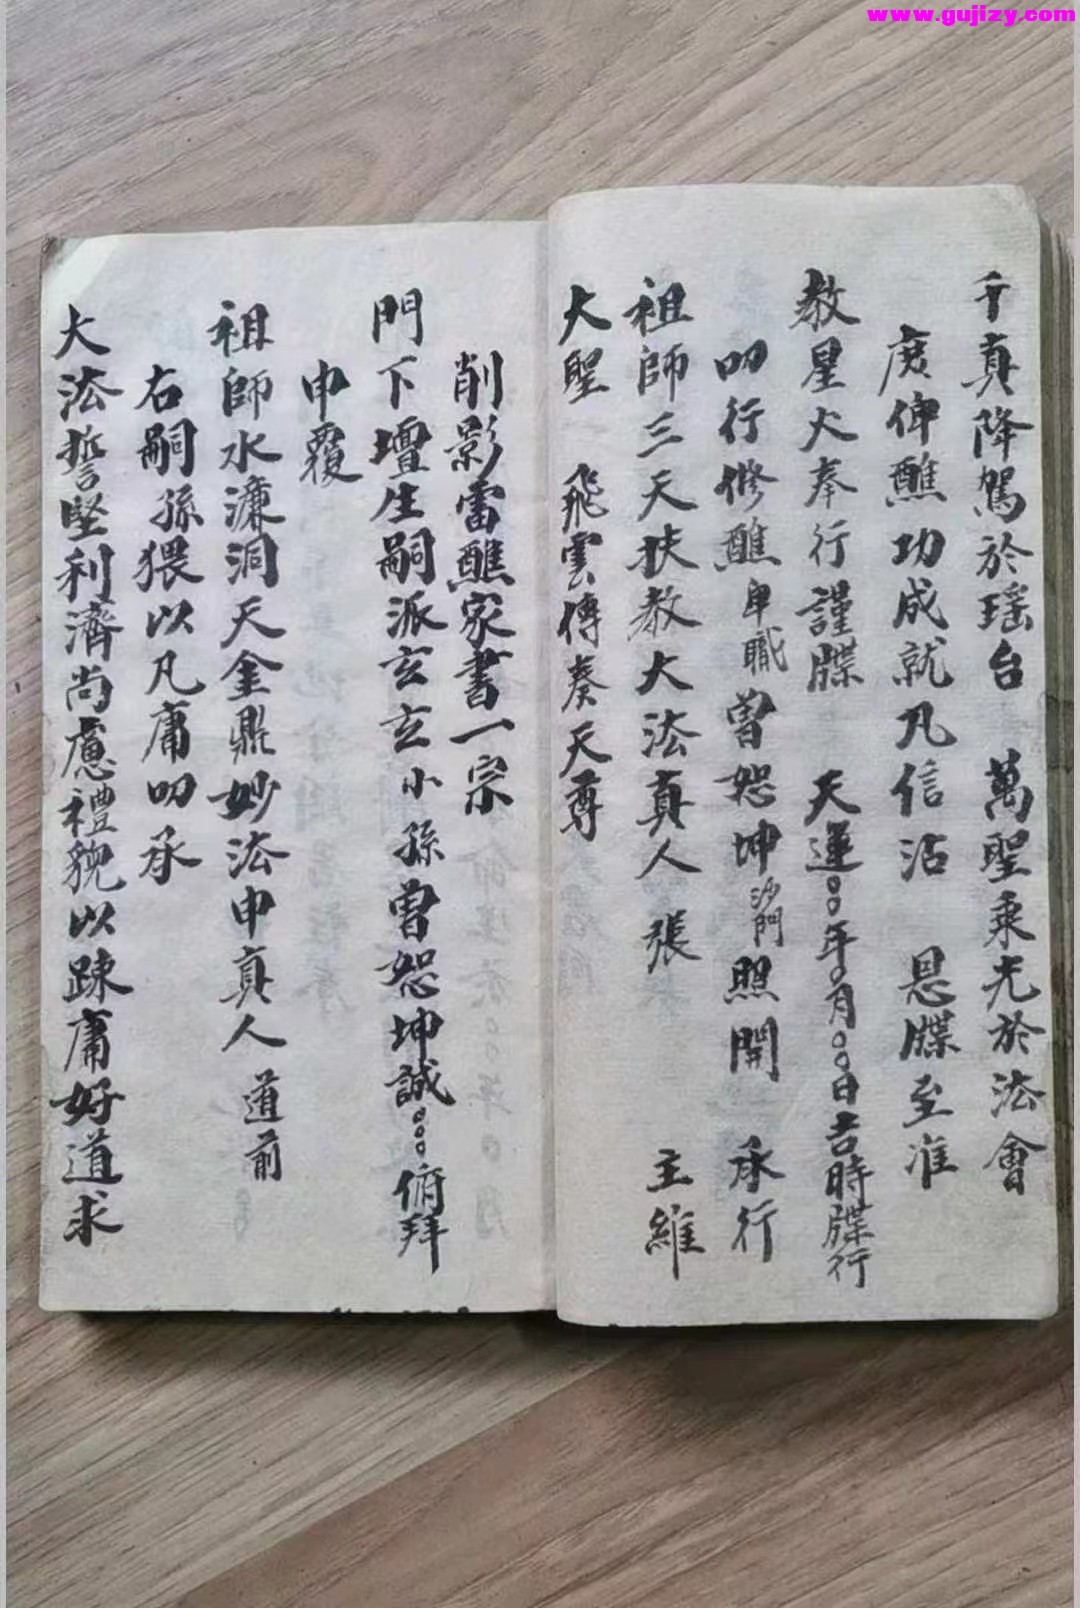 www.gujizy.com
千真降駕於瑶台 萬聖乘光於法會
庶俾醮功成就凡信沾 恩牒至准
教星火奉行謹牒 天運○○年○月○○日吉時牒行
叨行修醮卑職曾恕坤沙門照開 承行
祖師三天扶教大法真人 張 主維
大聖 飛雲傳奏天尊
削影雷醮家書一宗
門下壇生嗣派玄玄小孫曾恕坤誠○○○俯拜
申覆
祖師水濂洞天金鼎妙法申真人 道前
右嗣孫猥以凡庸叨承
大法誓堅利濟尚慮禮貌以踈庸好道求